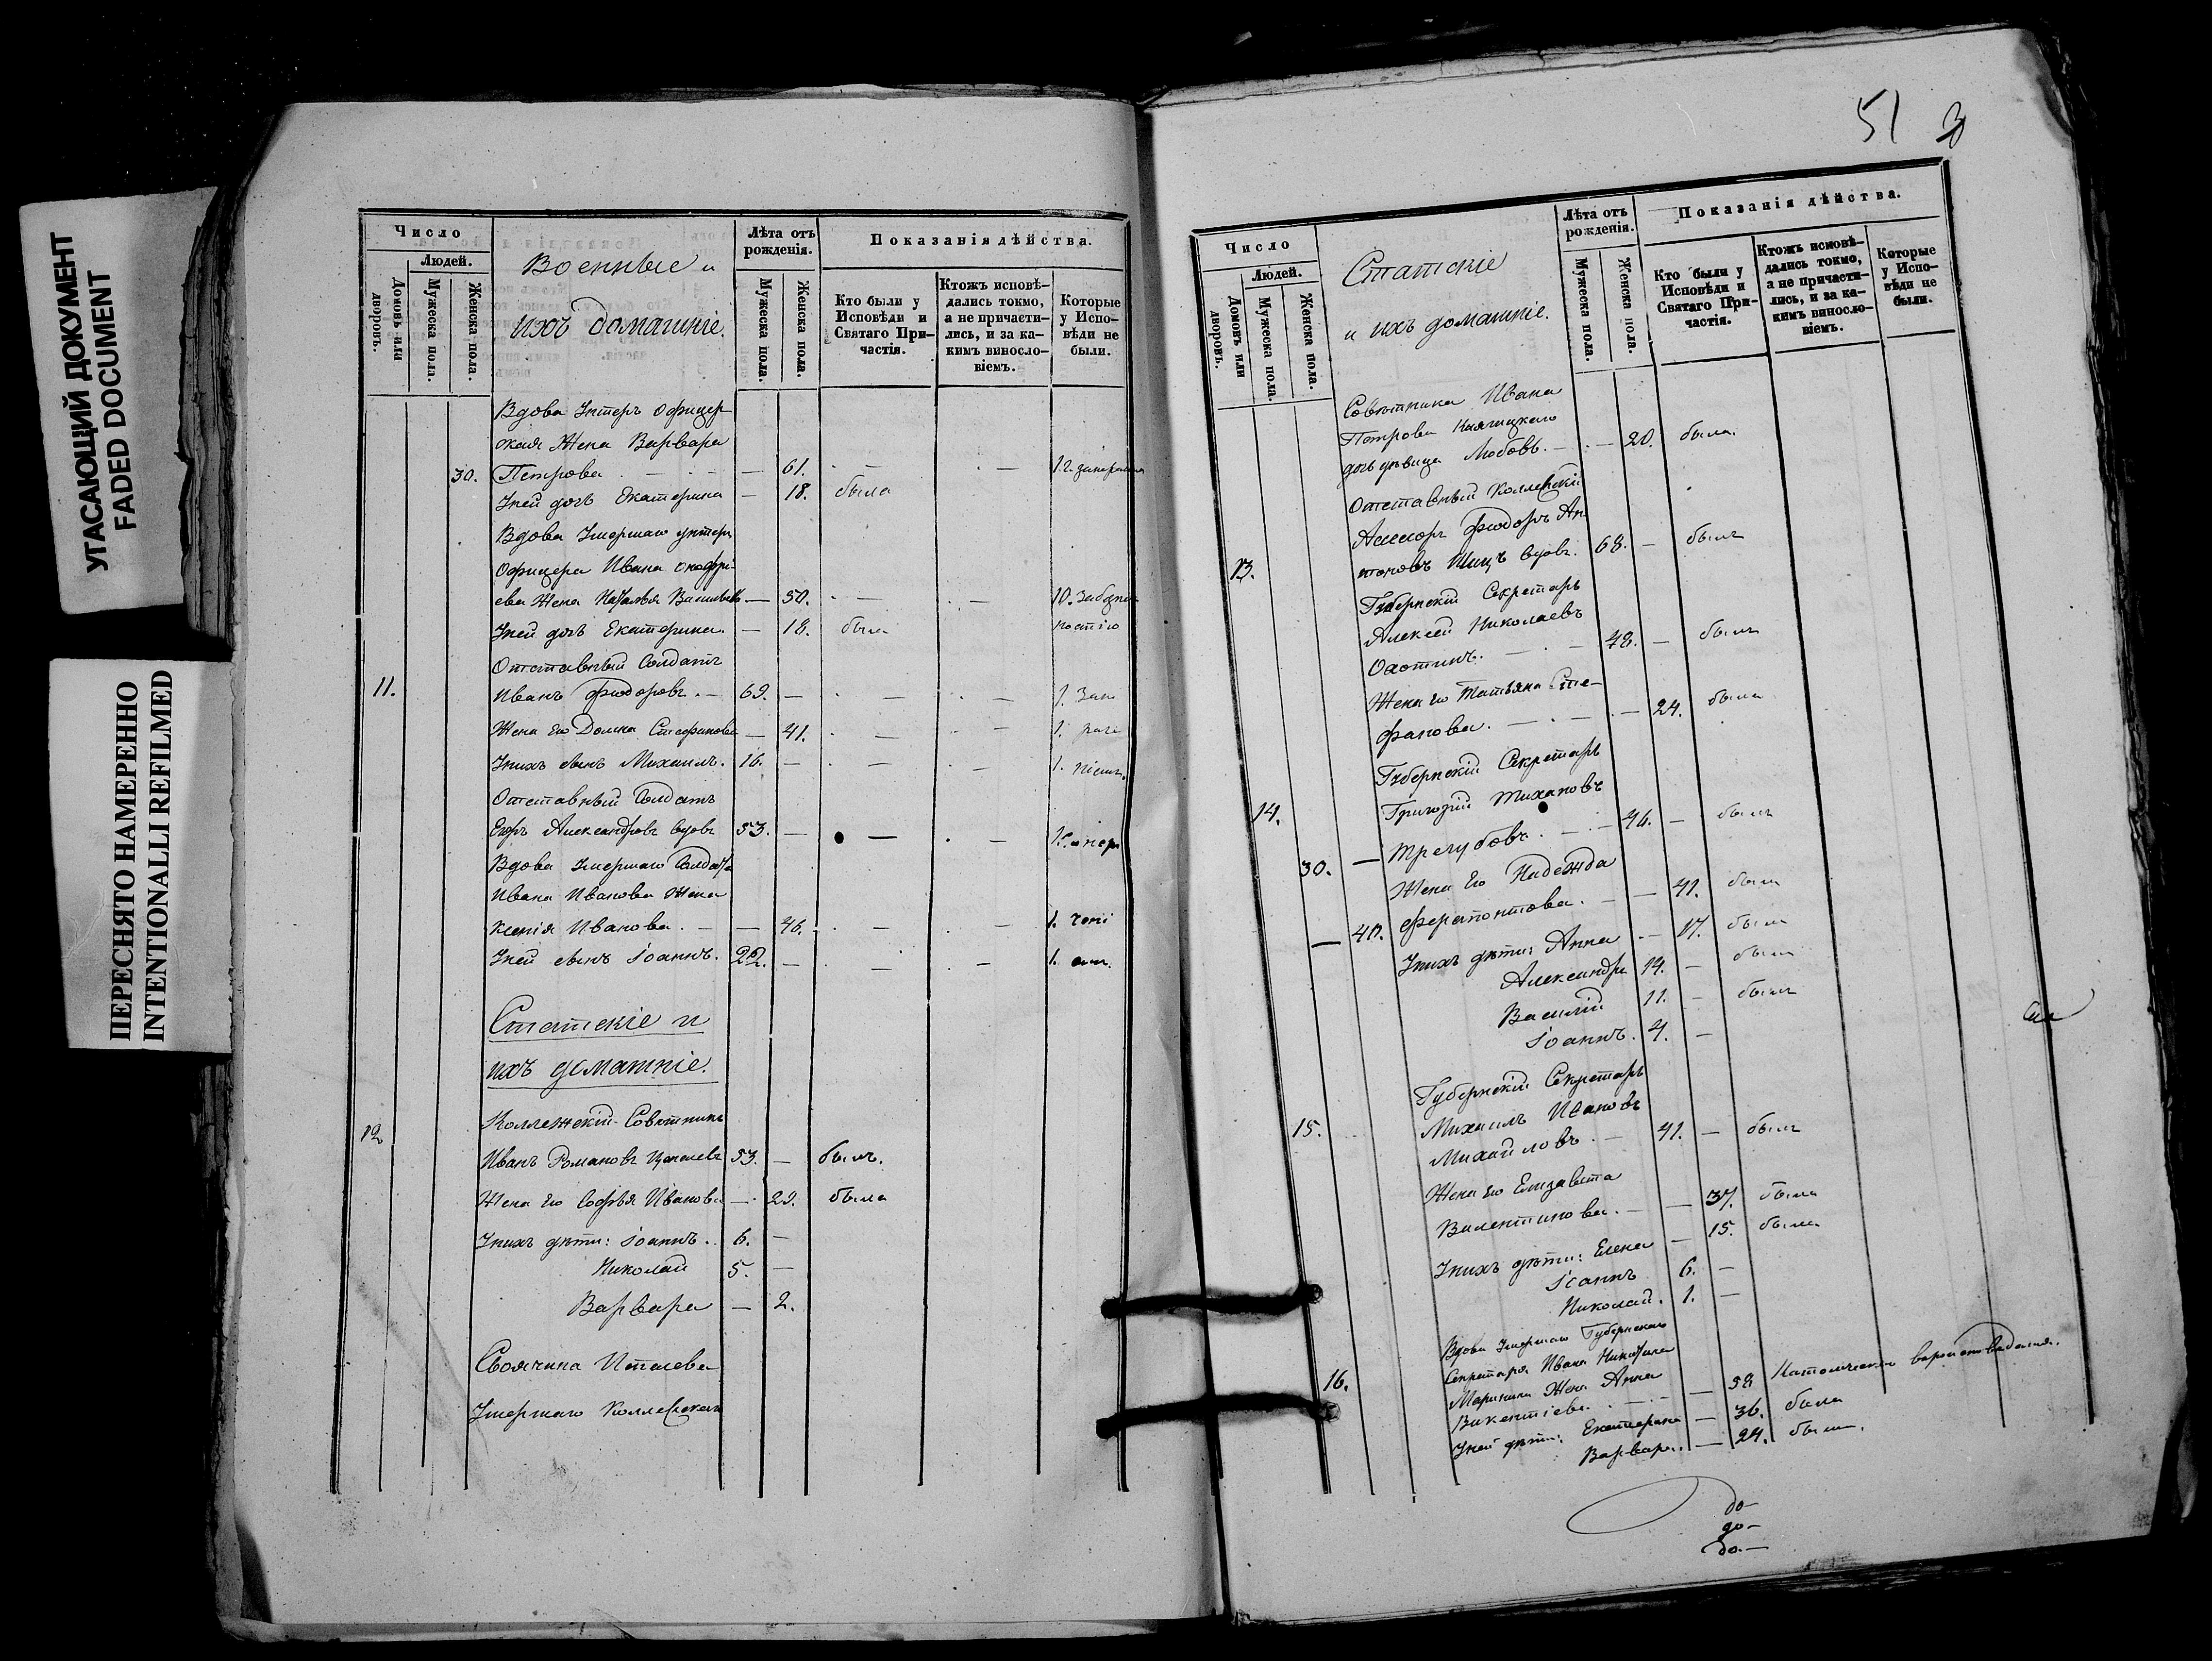 УГАСАЮЩИЙ ДОКУМЕНТ
FADED DOCUMENT
ПЕРЕСНЯТО НАМЕРЕННО
INTENTIONALLI REFILMED
Число
Людей.
Домовъ или дворовъ.
Мужеска пола.
Женска пола.
Военные и
ихъ домашніе.
Лѣта отъ рожденія.
Мужеска пола.
Женска пола.
Показанія дѣйства.
Кто были у Исповѣди и Святаго Причастія.
Ктожъ исповѣдались токмо, а не причастились, и за какимъ винословіемъ.
Которые у Исповѣди не были.
Вдова Унтеръ Офицер
ская Жена Варвара
30. Петрова — 61. — —
Уней дочь Екатерина — 18. была
Вдова Умершаго унтеръ
Офицера Ивана Онофрі-
ева Жена Наталья — 50. — — 10.
Уней дочь Екатерина. — 18. была
Отставный Солдатъ
11. Иванъ Фиодоровъ. — 69. — — — 1.
Жена Его Домна Стефанова — 41. — — 1.
Унихъ сынъ Михаилъ. 16. — — — 1.
Отставный Солдатъ
Егоръ Александровъ вдовъ 53. — — —
Вдова Умершаго Солдата
Ивана Иванова Жена
Ксенія Иванова. — — 46. — — 1.
Уней сынъ Іоаннъ. 22. — — — 1.
Статскіе и
ихъ домашніе.
12 Коллежскій Совѣтникъ
Иванъ Романовъ 53. — былъ.
Жена Его Софья Иванова — 29. была
Унихъ дѣти: Іоаннъ. 6. —
Николай 5. —
Варвара — 2.
Своячина
Умершаго Коллежскаго
51 3
Число
Людей.
Домовъ или дворовъ.
Мужеска пола.
Женска пола.
Статскіе
и ихъ домашніе.
Лѣта отъ рожденія.
Мужеска пола.
Женска пола.
Показанія дѣйства.
Кто были у Исповѣди и Святаго Причастія.
Ктожъ исповѣдались токмо, а не причастились, и за какимъ винословіемъ.
Которые у Исповѣди не были.
Совѣтника Ивана
Петрова
дочь дѣвица Любовь. — — 20. была.
Отставный Коллежскій
Ассесоръ Фиодоръ Ан
13. тоновъ вдовъ. 68. — былъ
Губернскій Секретарь
Алексей Николаевъ
Охотинъ. — 48. — былъ
Жена Его Татьяна Сте-
фанова. — — 24. была
Губернскій Секретарь
14. Григорій
30. — Трегубовъ. — 46. — былъ
Жена Его Надежда
— 40. Ферапонтова. — — 41. была
Унихъ дѣти: Анна — 17. была
Александръ 14. — былъ
Василій 11. — былъ
Іоаннъ. 4. —
Губернскій Секретарь
15. Михаилъ Ивановъ
Михайловъ. — 41. — былъ
Жена Его Елизавета
Валентинова. — — 37. была
Унихъ дѣти: Елена — 15. была
Іоаннъ 6. —
Николай. 1. —
Вдова Умершаго Губернскаго
16. Секретаря Ивана
Жена Анна
Викентіева. — — 58
Уней дѣти: Екатерина — 36. была
Варвара. — 24. была.
до—
до—
до.—